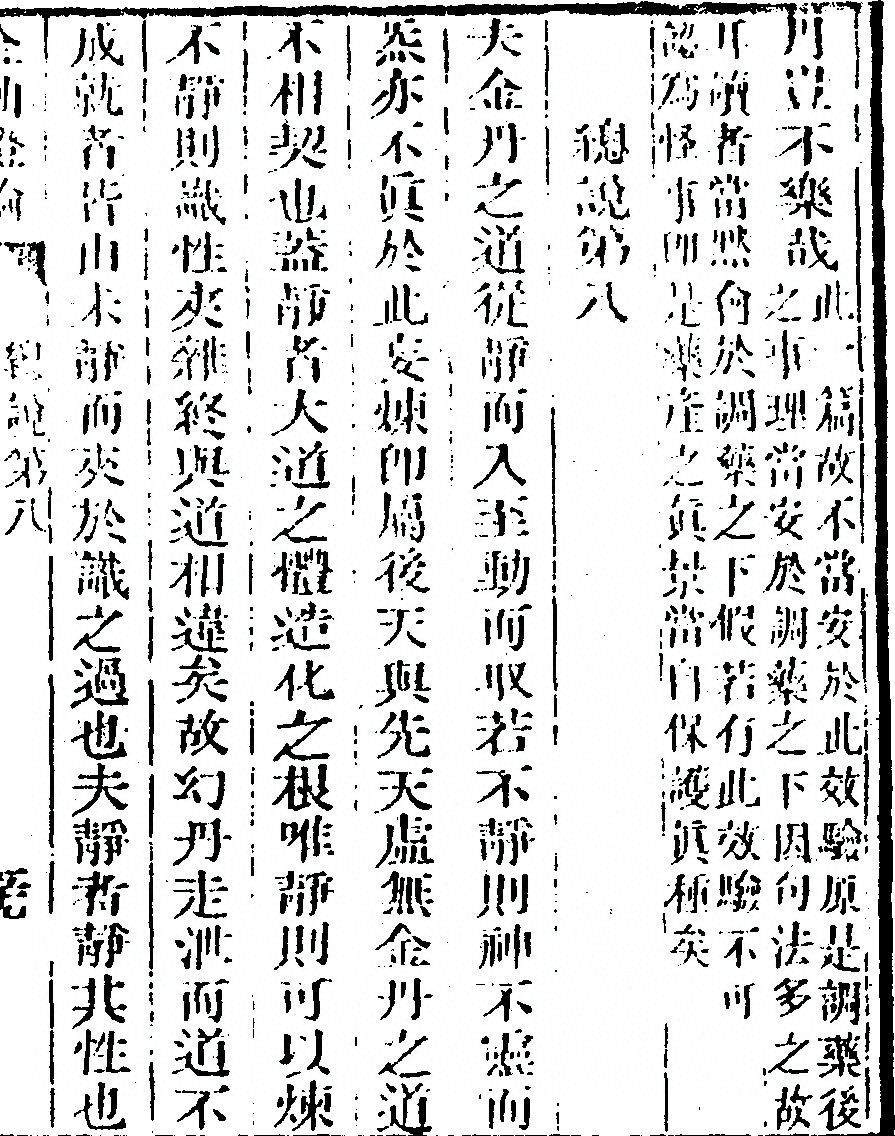 丹豈不樂哉此一篇故不當安於此效驗原是調藥後
之事理當安於調藥之下因句法多之故
耳讀者當默會於調藥之下假若有此效驗不可
認為怪事即是藥產之眞景當自保護眞種矣
總說第八
夫金丹之道從靜而入至動而取若不靜則神不靈而
炁亦不眞於此妄煉即屬後天與先天虛無金丹之道
不相契也蓋靜者大道之體造化之根唯靜則可以煉
不靜則識性夾雜終與道相違矣故幻丹走泄而道不
成就者皆由未靜而夾於識之過也夫靜者靜其性也
總說第八